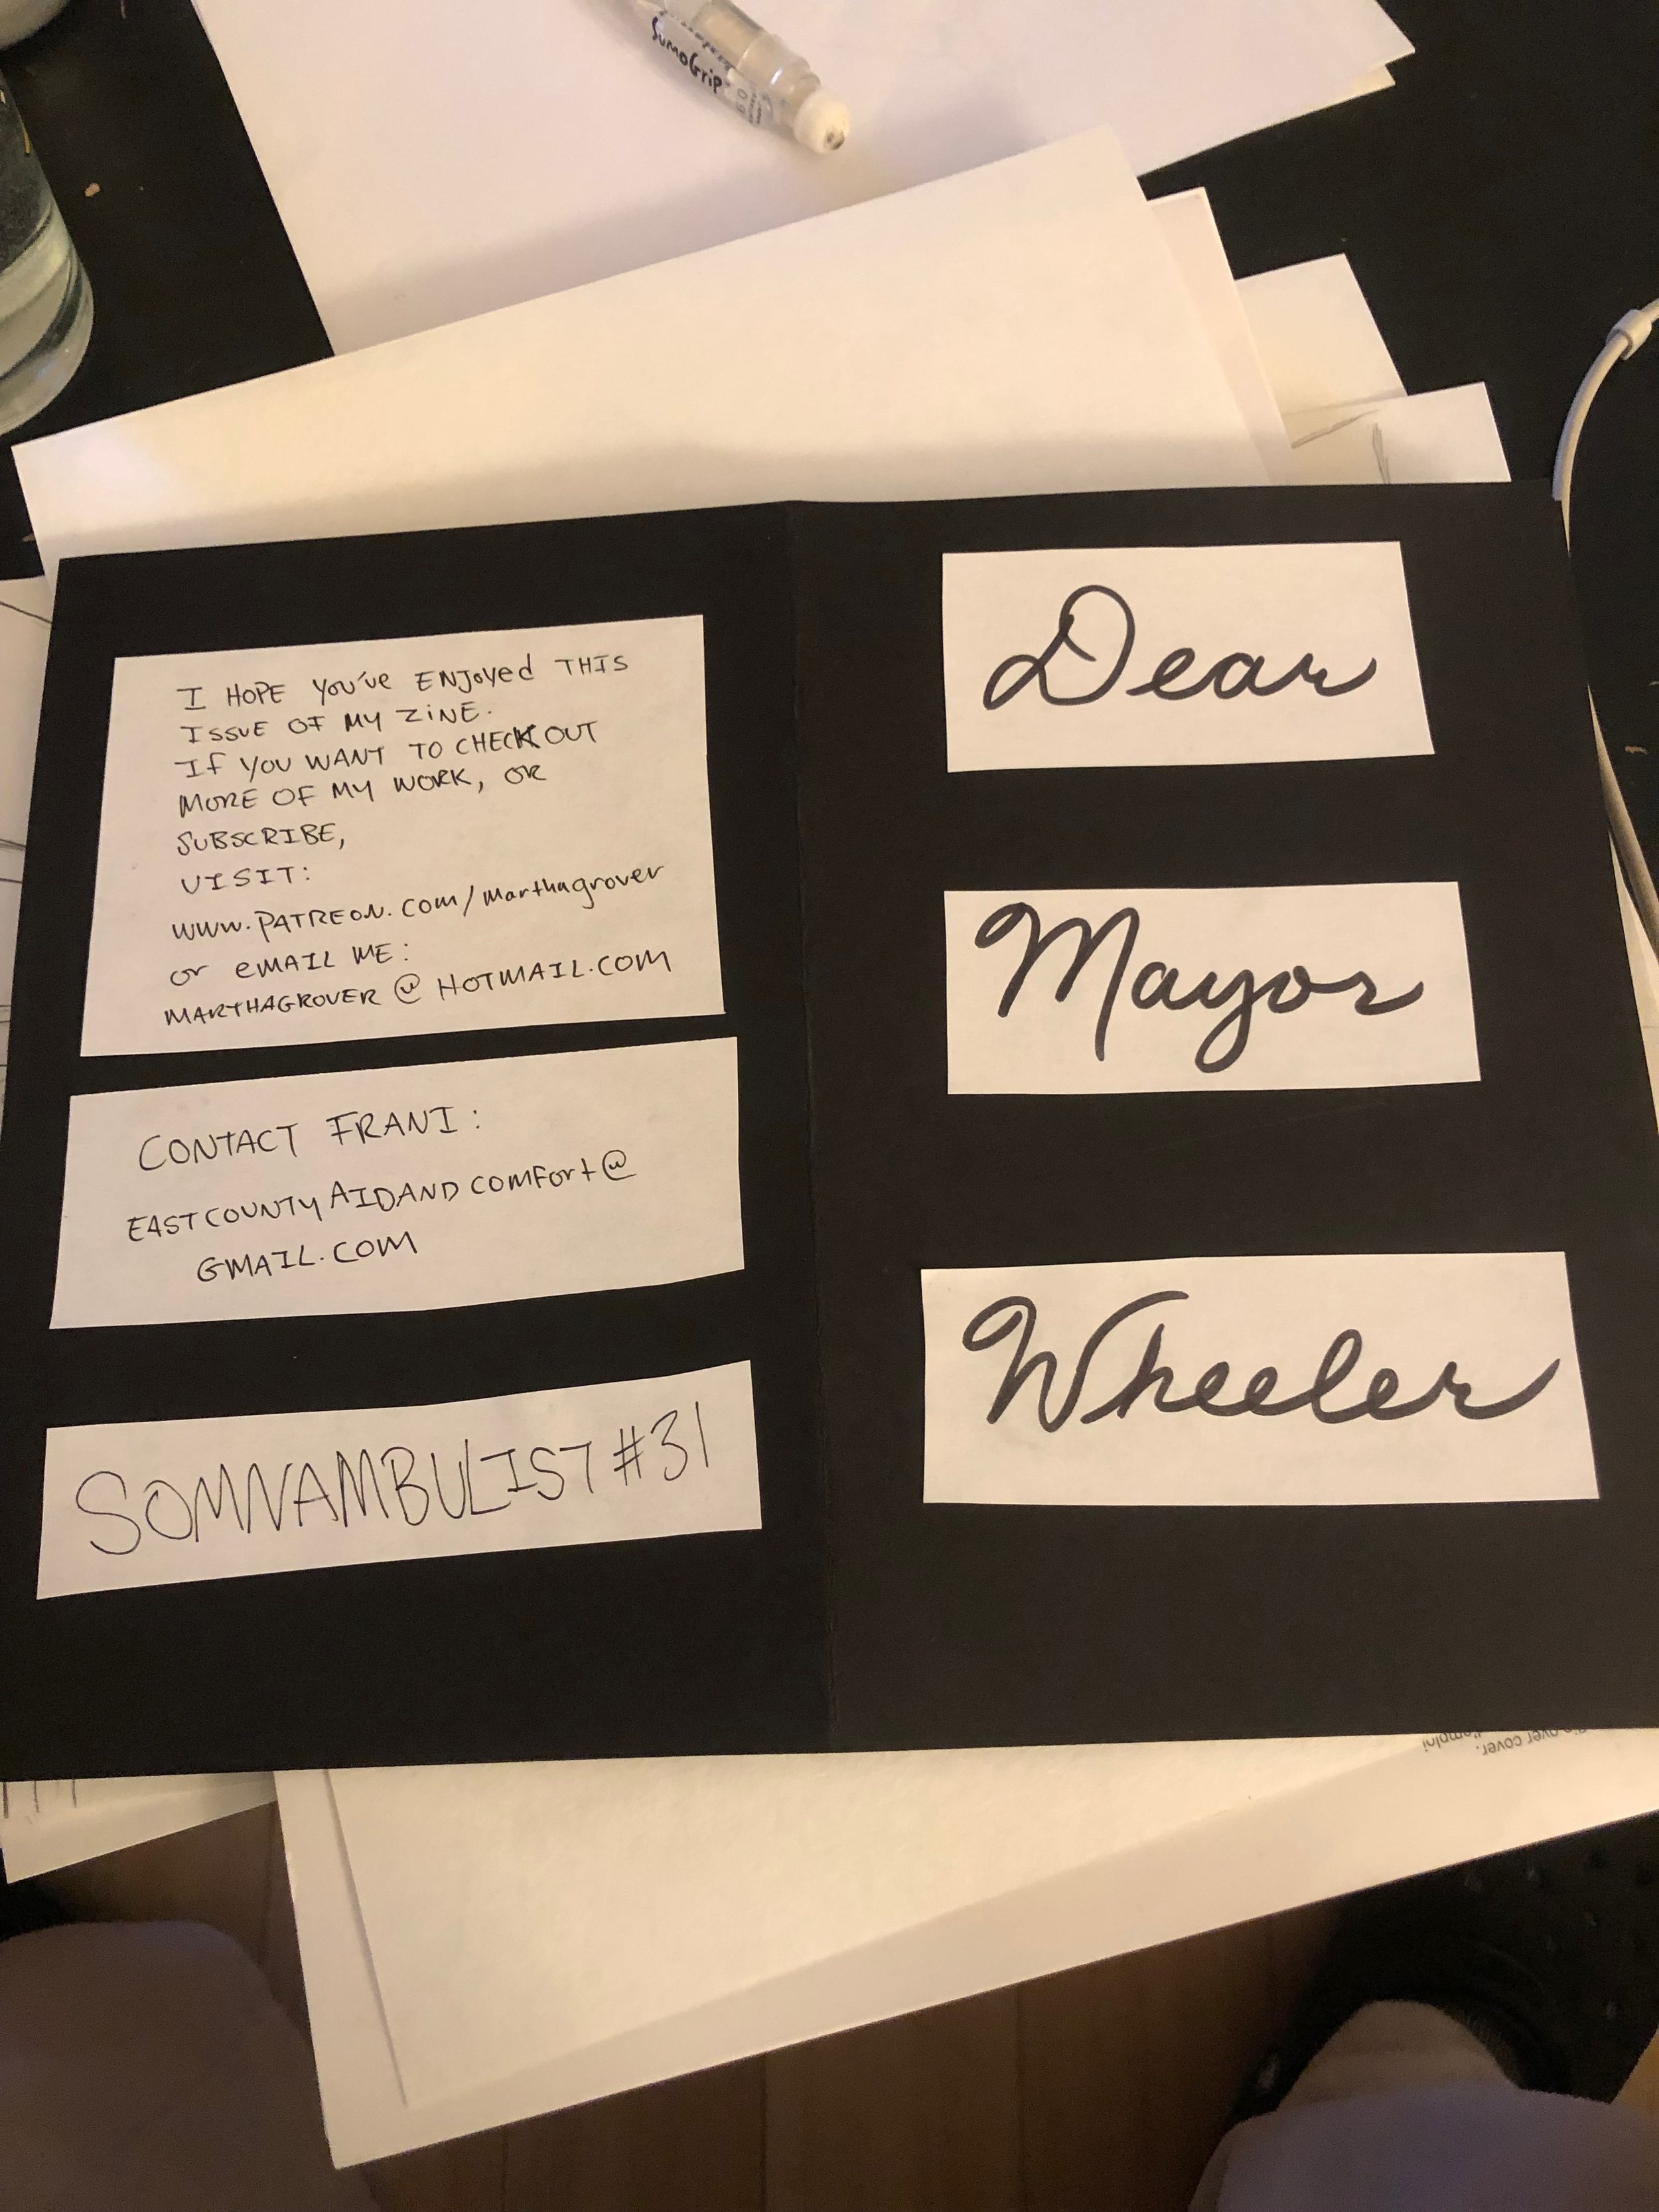 SumoGrip
I HOPE YOU'VE ENJOYED THIS
ISSUE OF MY ZINE.
IF YOU WANT TO CHECK OUT
MORE OF MY WORK, OR
SUBSCRIBE,
VISIT:
WWW.PATREON.COM/marthagrover
or eMAIL ME:
MARTHAGROVER @ HOTMAIL.COM
CONTACT FRANI:
EASTCOUNTYAIDANDCOMFORT@
GMAIL.COM
SOMNAMBULIST #31
Dear
Mayor
Wheeler
over cover.